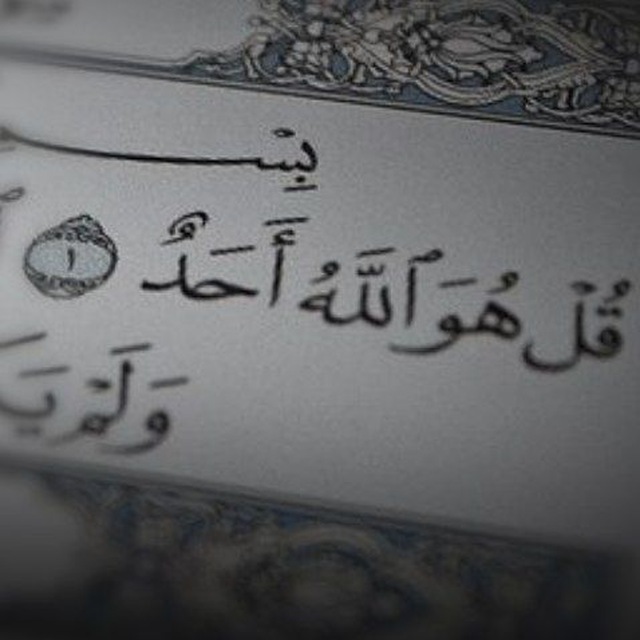 بِسْـ
قُلْ هُوَ ٱللَّهُ أَحَدٌ ١
وَلَمْ يَـ